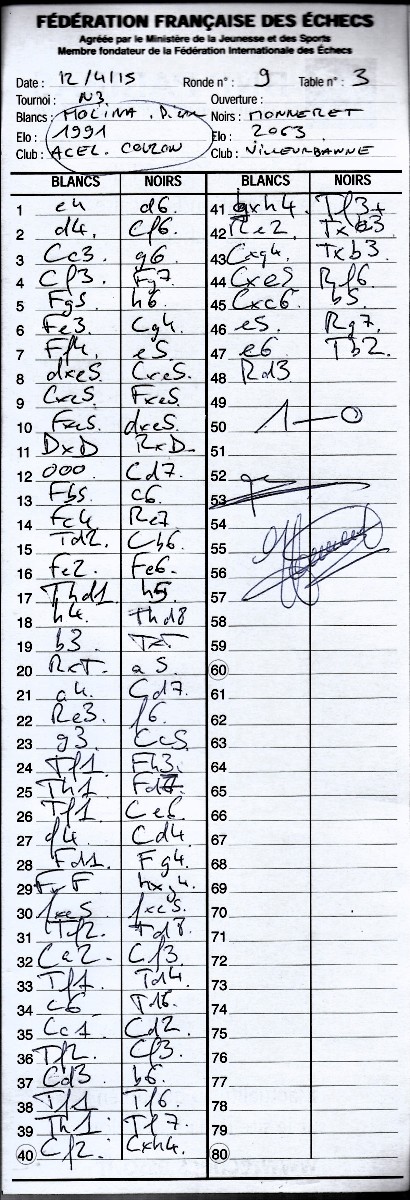 FÉDÉRATION FRANÇAISE DES ÉCHECS
Agréée par le Ministère de la Jeunesse et des Sports
Membre fondateur de la Fédération Internationale des Échecs
Date : 12/4/15 Ronde n° : 9 Table n° : 3
Tournoi : N3 Ouverture :
Blancs : MOLINA Noirs : MONNERET
Elo : 1991 Elo : 2063
Club : ACEL. COUZON Club : VILLEURBANNE
BLANCS NOIRS BLANCS NOIRS
1 e4 d6
2 d4. Cf6.
3 Cc3. g6
4 Cf3. Fg7
5 Fg5 h6
6 Fe3. Cg4.
7 Ff4. e5.
8 dxe5 Cxe5.
9 Cxe5 Fxe5.
10 Fxe5 dxe5.
11 DxD RxD.
12 000 Cd7.
13 Fb5. c6.
14 Fc4 Re7
15 Td2. Cb6.
16 Fe2. Fe6.
17 Thd1 h5
18 h4. Thd8
19 b3. TxT.
20 RxT. a5.
21 a4. Cd7.
22 Re3. f6.
23 g3. Cc5.
24 Tf1 Fh3.
25 Th1 Fd7
26 Tf1 Ce6.
27 f4. Cd4.
28 Fd1. Fg4.
29 FxF hxg4.
30 fxe5 fxe5.
31 Tf2. Td8.
32 Ce2. Cf3.
33 Tf1 Td4.
34 c6 T16.
35 Cc1 Cd2.
36 Tf2. Cf3.
37 Cd3. b6.
38 Tf1 Tf6.
39 Th1. Tf7.
40 Cf2. Cxh4.
41 gxh4. Tf3+
42 Re2. Txc3
43 Cxg4. Txb3.
44 Cxe5 Rf6.
45 Cxc6. b5.
46 e5. Rg7.
47 e6. Tb2.
48 Rd3
49
50 1-0
51
52
53
54
55
56
57
58
59
60
61
62
63
64
65
66
67
68
69
70
71
72
73
74
75
76
77
78
79
80